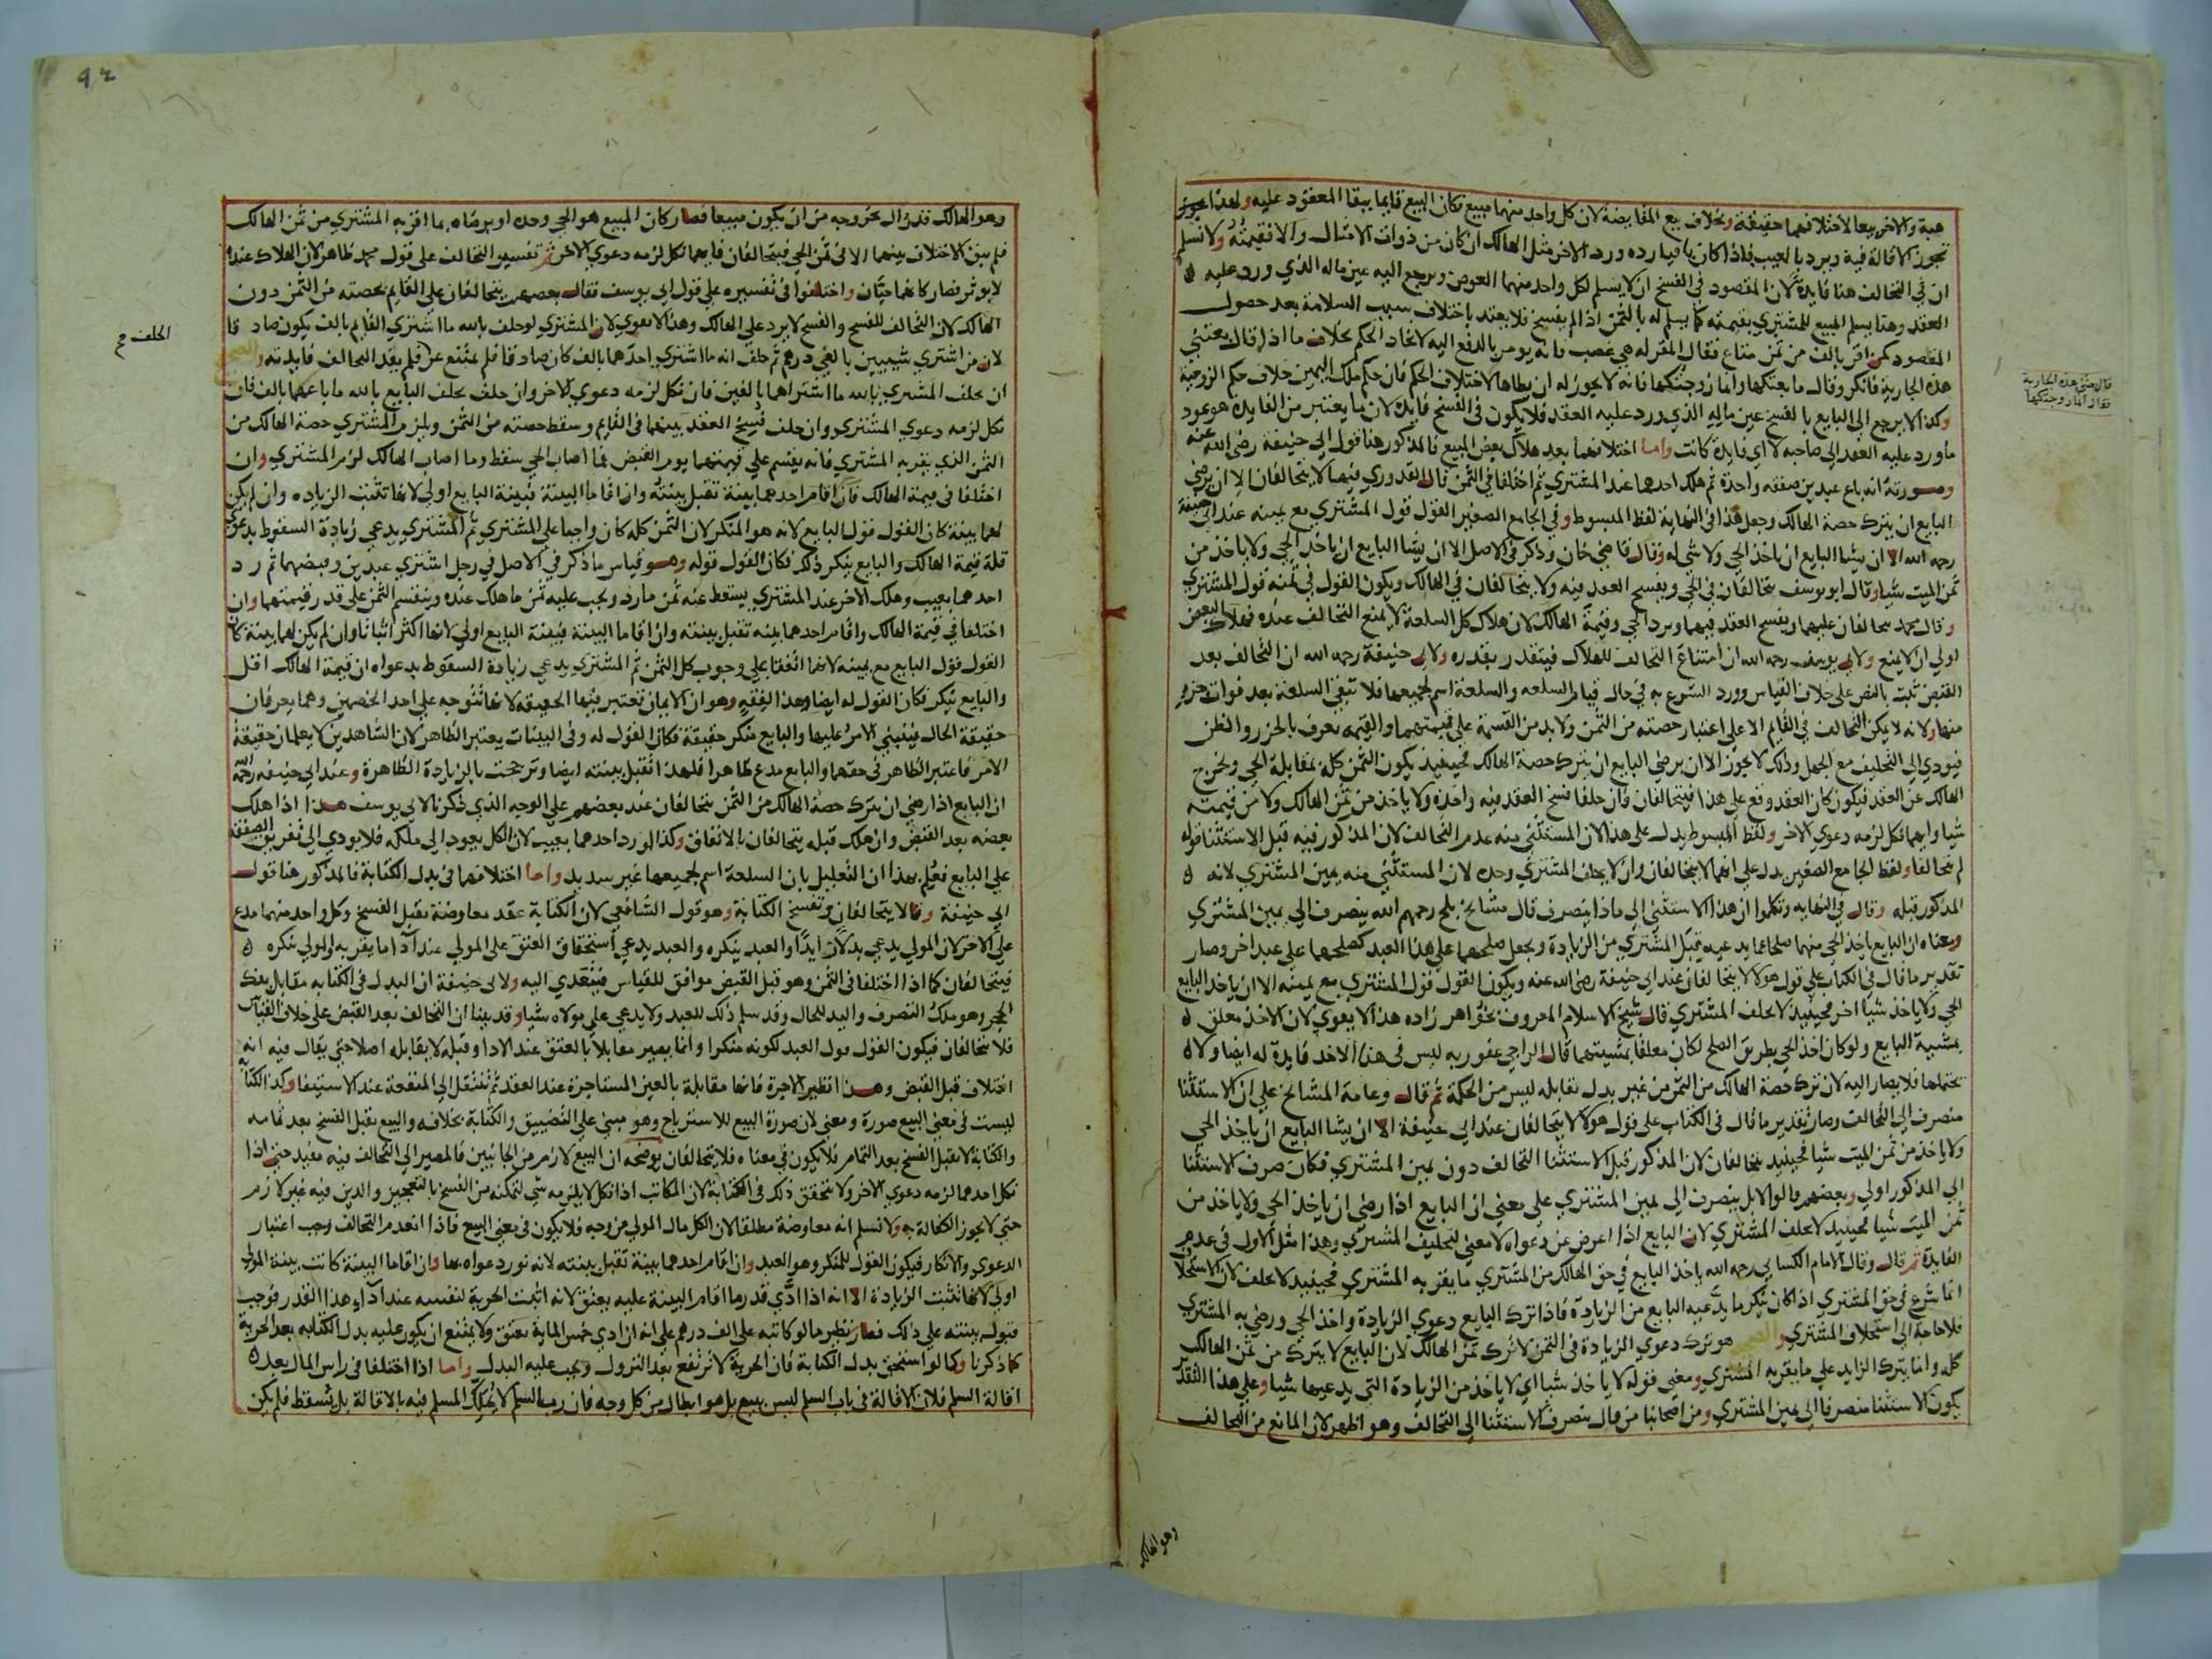 هبة والاخر بيعا لاختلافهما حقيقة وبخلاف بيع المقايضة لان كل واحد منهما مبيع فكان البيع قايما ببقا المعقود عليه ولهذا يجوز
تجوز الاقالة فيه ويرد بالعيب فاذا كان باقيا رده ورد الاخر مثل الهالك ان كان من ذوات الامثال والا فقيمته ولا نسلم
ان في التحالف هنا فايدة لان المقصود في الفسخ ان لا يسلم لكل واحد منهما العوض ويرجع اليه عين ماله الذي ورد عليه
العقد وهنا يسلم المبيع للمشتري بقيمته كما يسلم له بالثمن اذا لم يفسخ فلا يعتد باختلاف سبب السلامة بعد حصول
المقصود كمن اقر بالف من ثمن متاع فقال المقر له هي غصب فانه يومر بالدفع اليه لاتحاد الحكم بخلاف ما اذا قال بعتني
هذه الجارية فانكر وقال ما بعتكها وانما زوجتكها فانه لا يجوز له ان يطاها لاختلاف الحكم فان حكم ملك اليمين خلاف حكم الزوجية
وكذا لا يرجع الى البايع بالفسخ عين ماله الذي ورد عليه العقد فلا يكون في الفسخ فايدة لان ما يعتبر من الفايدة هو عود
ما ورد عليه العقد الى صاحبه لا اي فايدة كانت واما اختلافهما بعد هلاك بعض المبيع فالمذكور هنا قول ابي حنيفة رضي الله عنه
وصورته انه باع عبدين صفقة واحدة ثم هلك احدهما عند المشتري ثم اختلفا في الثمن قال القدوري فيهما لا يتحالفان الا ان يرضى
البايع ان يترك حصة الهالك وجعل هذا في النهاية لفظ المبسوط وفي الجامع الصغير القول قول المشتري مع يمينه عند ابي حنيفة
رحمه الله الا ان يشا البايع ان ياخذ الحي ولا شي له وقال قاضي خان وذكر في الاصل الا ان يشا البايع ان ياخذ الحي ولا ياخذ من
ثمن الميت شيا وقال ابو يوسف يتحالفان في الحي ويفسخ العقد فيه ولا يتحالفان في الهالك ويكون القول في ثمنه قول المشتري
وقال محمد يتحالفان عليهما ويفسخ العقد فيهما ويرد الحي وقيمة الهالك لان هلاك كل السلعة لا يمنع التحالف عنده فهلاك البعض
اولى ان لا يمنع ولابي يوسف رحمه الله ان امتناع التحالف للهلاك فيتقدر بقدره ولابي حنيفة رحمه الله ان التحالف بعد
القبض ثبت بالنص على خلاف القياس وورد الشرع به في حال قيام السلعه والسلعة اسم لجميعها فلا تبقى السلعة بعد فوات جزء
منها ولانه لا يمكن التحالف في القايم الا على اعتبار حصته من الثمن ولا بد من القسمة على قيمتهما والقيمة تعرف بالحزر والظن
فيودي الى التحليف مع الجهل وذلك لا يجوز الا ان يرضى البايع ان يترك حصة الهالك فحينيذ يكون الثمن كله بمقابلة الحي ويخرج
الهالك عن العقد فيكون كان العقد وقع على هذا فيتحالفان وان حلفا فسخ العقد فيه واخذه ولا ياخذ من ثمن الهالك ولا من قيمته
شيا وايهما نكل لزمه دعوى الاخر ولفظ المبسوط يدل على هذا لان المستثنى منه عدم التحالف لان المذكور فيه قبل الاستثنا قوله
لم يتحالفا ولفظ الجامع الصغير يدل على انهما لا يتحالفان وان لا يحلف المشتري وحده لان المستثنى منه يمين المشتري لانه
المذكور قبله وقال في النهاية وتكلموا ان هذا الاستثنى الى ماذا ينصرف قال مشايخ بلخ رحمهم الله ينصرف الى يمين المشتري
ومعناه ان البايع ياخذ الحي منهما صلحا عما يدعيه قبل المشتري من الزيادة ويجعل صلحهما على هذا العبد كصلحهما على عبد اخر وصار
تقدير ما قال في الكتاب على قول هولا لا يتحالفان عند ابي حنيفة رضي الله عنه ويكون القول قول المشتري مع يمينه الا ان ياخذ البايع
الحي ولا ياخذ شيا اخر فحينيذ لا يحلف المشتري قال شيخ الاسلام المعروف بخواهر زاده هذا لا يقوى لان الاخذ معلق
بمشية البايع ولو كان اخذ الحي بطريق الصلح لكان معلقا بمشيتهما قال الراجي عفو ربه ليس في هذا الاخذ فايدة له ايضا ولا
تحتملها فلا يصار اليه لان ترك حصة الهالك من الثمن من غير بدل يقابله ليس من الحكمة ثم قال وعامة المشايخ على ان الاستثنا
منصرف الى التحالف وصار تقدير ما قال في الكتاب على قول هولا لا يتحالفان عند ابي حنيفة الا ان يشا البايع ان ياخذ الحي
ولا ياخذ من ثمن الميت شيا فحينيذ يتحالفان لان المذكور قبل الاستثنا التحالف دون يمين المشتري فكان صرف الاستثنا
الى المذكور اولى وبعضهم قالوا لا بل ينصرف الى يمين المشتري على معنى ان البايع اذا رضى ان ياخذ الحي ولا ياخذ من
ثمن الميت شيا فحينيذ لا يحلف المشتري لان البايع اذا اعرض عن دعواه لا معنى لتحليف المشتري وهذا مثل الاول في عدم
الفايدة ثم قال وقال الامام الكسابي رحمه الله ياخذ البايع في حق الهالك من المشتري ما يقر به المشتري فحينيذ لا يحلف لان الاستحلاف
انما شرع في حق المشتري اذا كان ينكر ما يدعيه البايع من الزيادة فاذا ترك البايع دعوى الزيادة واخذ الحي ورضي به المشتري
فلا حاجة الى استحلاف المشتري والصحيح هو ترك دعوى الزيادة في الثمن لا ترك ثمن الهالك لان البايع لا يترك من ثمن الهالك
كله وانما يترك الزايد على ما يقر به المشتري ومعنى قوله لا ياخذ شيا اي لا ياخذ من الزيادة التي يدعيها شيا وعلى هذا التقدير
يكون الاستثنا منصرفا الى يمين المشتري ومن اصحابنا من قال ينصرف الاستثنا الى التحالف وهو اظهر لان المانع من التحالف
وهو الهالك
قال بعتني هذه الجارية
فقال انما زوجتكها
٩٢
وهو الهالك قد زال بخروجه من ان يكون مبيعا فصار كان المبيع هو الحي وحده او برضاه بما اقر به المشتري من ثمن الهالك
فلم يبق الاختلاف بينهما الا في ثمن الحي فيتحالفان فايهما نكل لزمه دعوى الاخر ثم تفسير التحالف على قول محمد ظاهر لان الهلاك عنده
لا يوثر فصار كانهما حيان واختلفوا في تفسيره على قول ابي يوسف فقال بعضهم يتحالفان على القايم بحصته من الثمن دون
الهالك لان التحالف للفسخ والفسخ لا يرد على الهالك وهذا لا يقوي لان المشتري لو حلف بالله ما اشتري القايم بالف يكون صادقا
لان من اشتري شييين بالفي درهم ثم حلف انه ما اشتري احدهما بالف كان صادقا فلم يمتنع عن فلم يفد التحالف فايدته والصحيح
ان يحلف المشتري بالله ما اشتراهما بالفين فان نكل لزمه دعوي الاخر وان حلف يحلف البايع بالله ما باعهما بالف فان
نكل لزمه دعوي المشتري وان حلف فسخ العقد بينهما في القايم وسقط حصته من الثمن ويلزم المشتري حصة الهالك من
الثمن الذي يقر به المشتري فانه يقسم على قيمتهما يوم القبض فما اصاب الحي سقط وما اصاب الهالك لزم المشتري وان
اختلفا في قيمة الهالك فان اقام احدهما بينة تقبل بينته وان اقاما البينة فبينة البايع اولى لانها تثبت الزياده وان لم يكن
لهما بينة كان القول قول البايع لانه هو المنكر لان الثمن كله كان واجبا على المشتري ثم المشتري يدعي زيادة السقوط بدعوى
قلة قيمة الهالك والبايع ينكر ذلك فكان القول قوله وهو قياس ما ذكر في الاصل في رجل اشتري عبدين وقبضهما ثم رد
احدهما بعيب وهلك الاخر عند المشتري يسقط عنه ثمن ما رد ويجب عليه ثمن ما هلك عنده وينقسم الثمن على قدر قيمتهما وان
اختلفا في قيمة الهالك واقام احدهما بينه تقبل بينته وان اقاما البينة فبينة البايع اولى لانها اكثر اثباتا وان لم يكن لهما بينة كان
القول قول البايع مع يمينه لانهما اتفقا على وجوب كل الثمن ثم المشتري يدعي زيادة السقوط بدعواه ان قيمة الهالك اقل
والبايع ينكر فكان القول له ايضا وهذا لفقه وهو ان الايمان تعتبر فيها الحقيقة لانها تتوجه على احد الخصمين وهما يعرفان
حقيقة الحال فيبتني الامر عليها والبايع منكر حقيقة فكان القول له وفي البينات يعتبر الظاهر لان الشاهدين لا يعلمان حقيقة
الامر فاعتبر الظاهر في حقهما والبايع مدع ظاهرا فلهذا تقبل بينته ايضا وترجحت بالزيادة الظاهرة وعند ابي حنيفه رحمه الله
ان البايع اذا رضي ان يترك حصة الهالك من الثمن يتحالفان عند بعضهم على الوجه الذي ذكرنا لابي يوسف هذا اذا هلك
بعضه بعد القبض وان هلك قبله يتحالفان بالاتفاق وكذا لو رد احدهما بعيب لان الكل يعود الى ملكه فلا يودي الى تفريق الصفقة
على البايع فعلم بهذا ان التعليل بان السلعة اسم لجميعها غير سديد واما اختلافهما في بدل الكتابة فالمذكور هنا قول
ابي حنيفة وقالا يتحالفان وتفسخ الكتابة وهو قول الشافعي لان الكتابة عقد معاوضة يقبل الفسخ وكل واحد منهما مدع
على الاخر لان المولى يدعي بدلا زايدا والعبد ينكره والعبد يدعي استحقاق العتق على المولى عند اداء ما يقر به والمولى ينكره
فيتحالفان كما اذا اختلفا في الثمن وهو قبل القبض موافق للقياس فيتعدي اليه ولابي حنيفة ان البدل في الكتابه مقابل بفك
الحجر وهو ملك التصرف واليد للحال وقد سلم ذلك للعبد ولا يدعي على مولاه شيا وقد بينا ان التحالف بعد القبض على خلاف القياس
فلا يتحالفان فيكون القول قول العبد لكونه منكرا وانما يصير مقابلا بالعتق عند الادا وقبله لا يقابله اصلا حتي يقال فيه انه
اختلاف قبل القبض وهذا نظير الاجرة فانها مقابلة بالعين المستاجرة عند العقد ثم تنتقل الى المنفعة عند الاستيفا وكذا الكتابة
ليست في معنى البيع صورة ومعني لان صورة البيع للاسترباح وهو مبني على التضييق والكتابة بخلافه والبيع يقبل الفسخ بعد تمامه
والكتابة لا تقبل الفسخ بعد التمام فلا يكون في معناه فلا يتحالفان يوضحه ان البيع لازم من الجانبين فالمصير الى التحالف فيه مفيد حتى اذا
نكل احدهما لزمه دعوي الاخر ولا يتحقق ذلك في الكتابة لان المكاتب اذا نكل لا يلزمه شي لتمكنه من الفسخ بالتعجيز والدين فيه غير لازم
حتى لا يجوز الكفالة به ولا نسلم انه معاوضة مطلقا لان الكل مال المولى من وجه فلا يكون في معنى البيع فاذا انعدم التحالف وجب اعتبار
الدعوي والانكار فيكون القول للمنكر وهو العبد وان اقام احدهما بينة تقبل بينته لانه نور دعواه بها وان اقاما البينة كانت بينة المولى
اولى لانها تثبت الزيادة الا انه اذا ادي قدر ما اقام البينة عليه يعتق لانه اثبت الحرية لنفسه عند اداء هذا القدر فوجب
قبول بينته على ذلك فصار نظير ما لو كاتبه على الف درهم على انه ان ادي خمس الماية يعتق ولا يمتنع ان يكون عليه بدل الكتابه بعد الحرية
كما ذكرنا وكما لو استحق بدل الكتابة فان الحرية لا ترتفع بعد النزول ويجب عليه البدل واما اذا اختلفا في راس المال بعد
اقالة السلم فلان الاقالة في باب السلم ليس ببيع بل هو ابطال من كل وجه فان رب السلم لا يملك المسلم فيه بالاقالة بل يسقط فلم يكن
الحلف صح